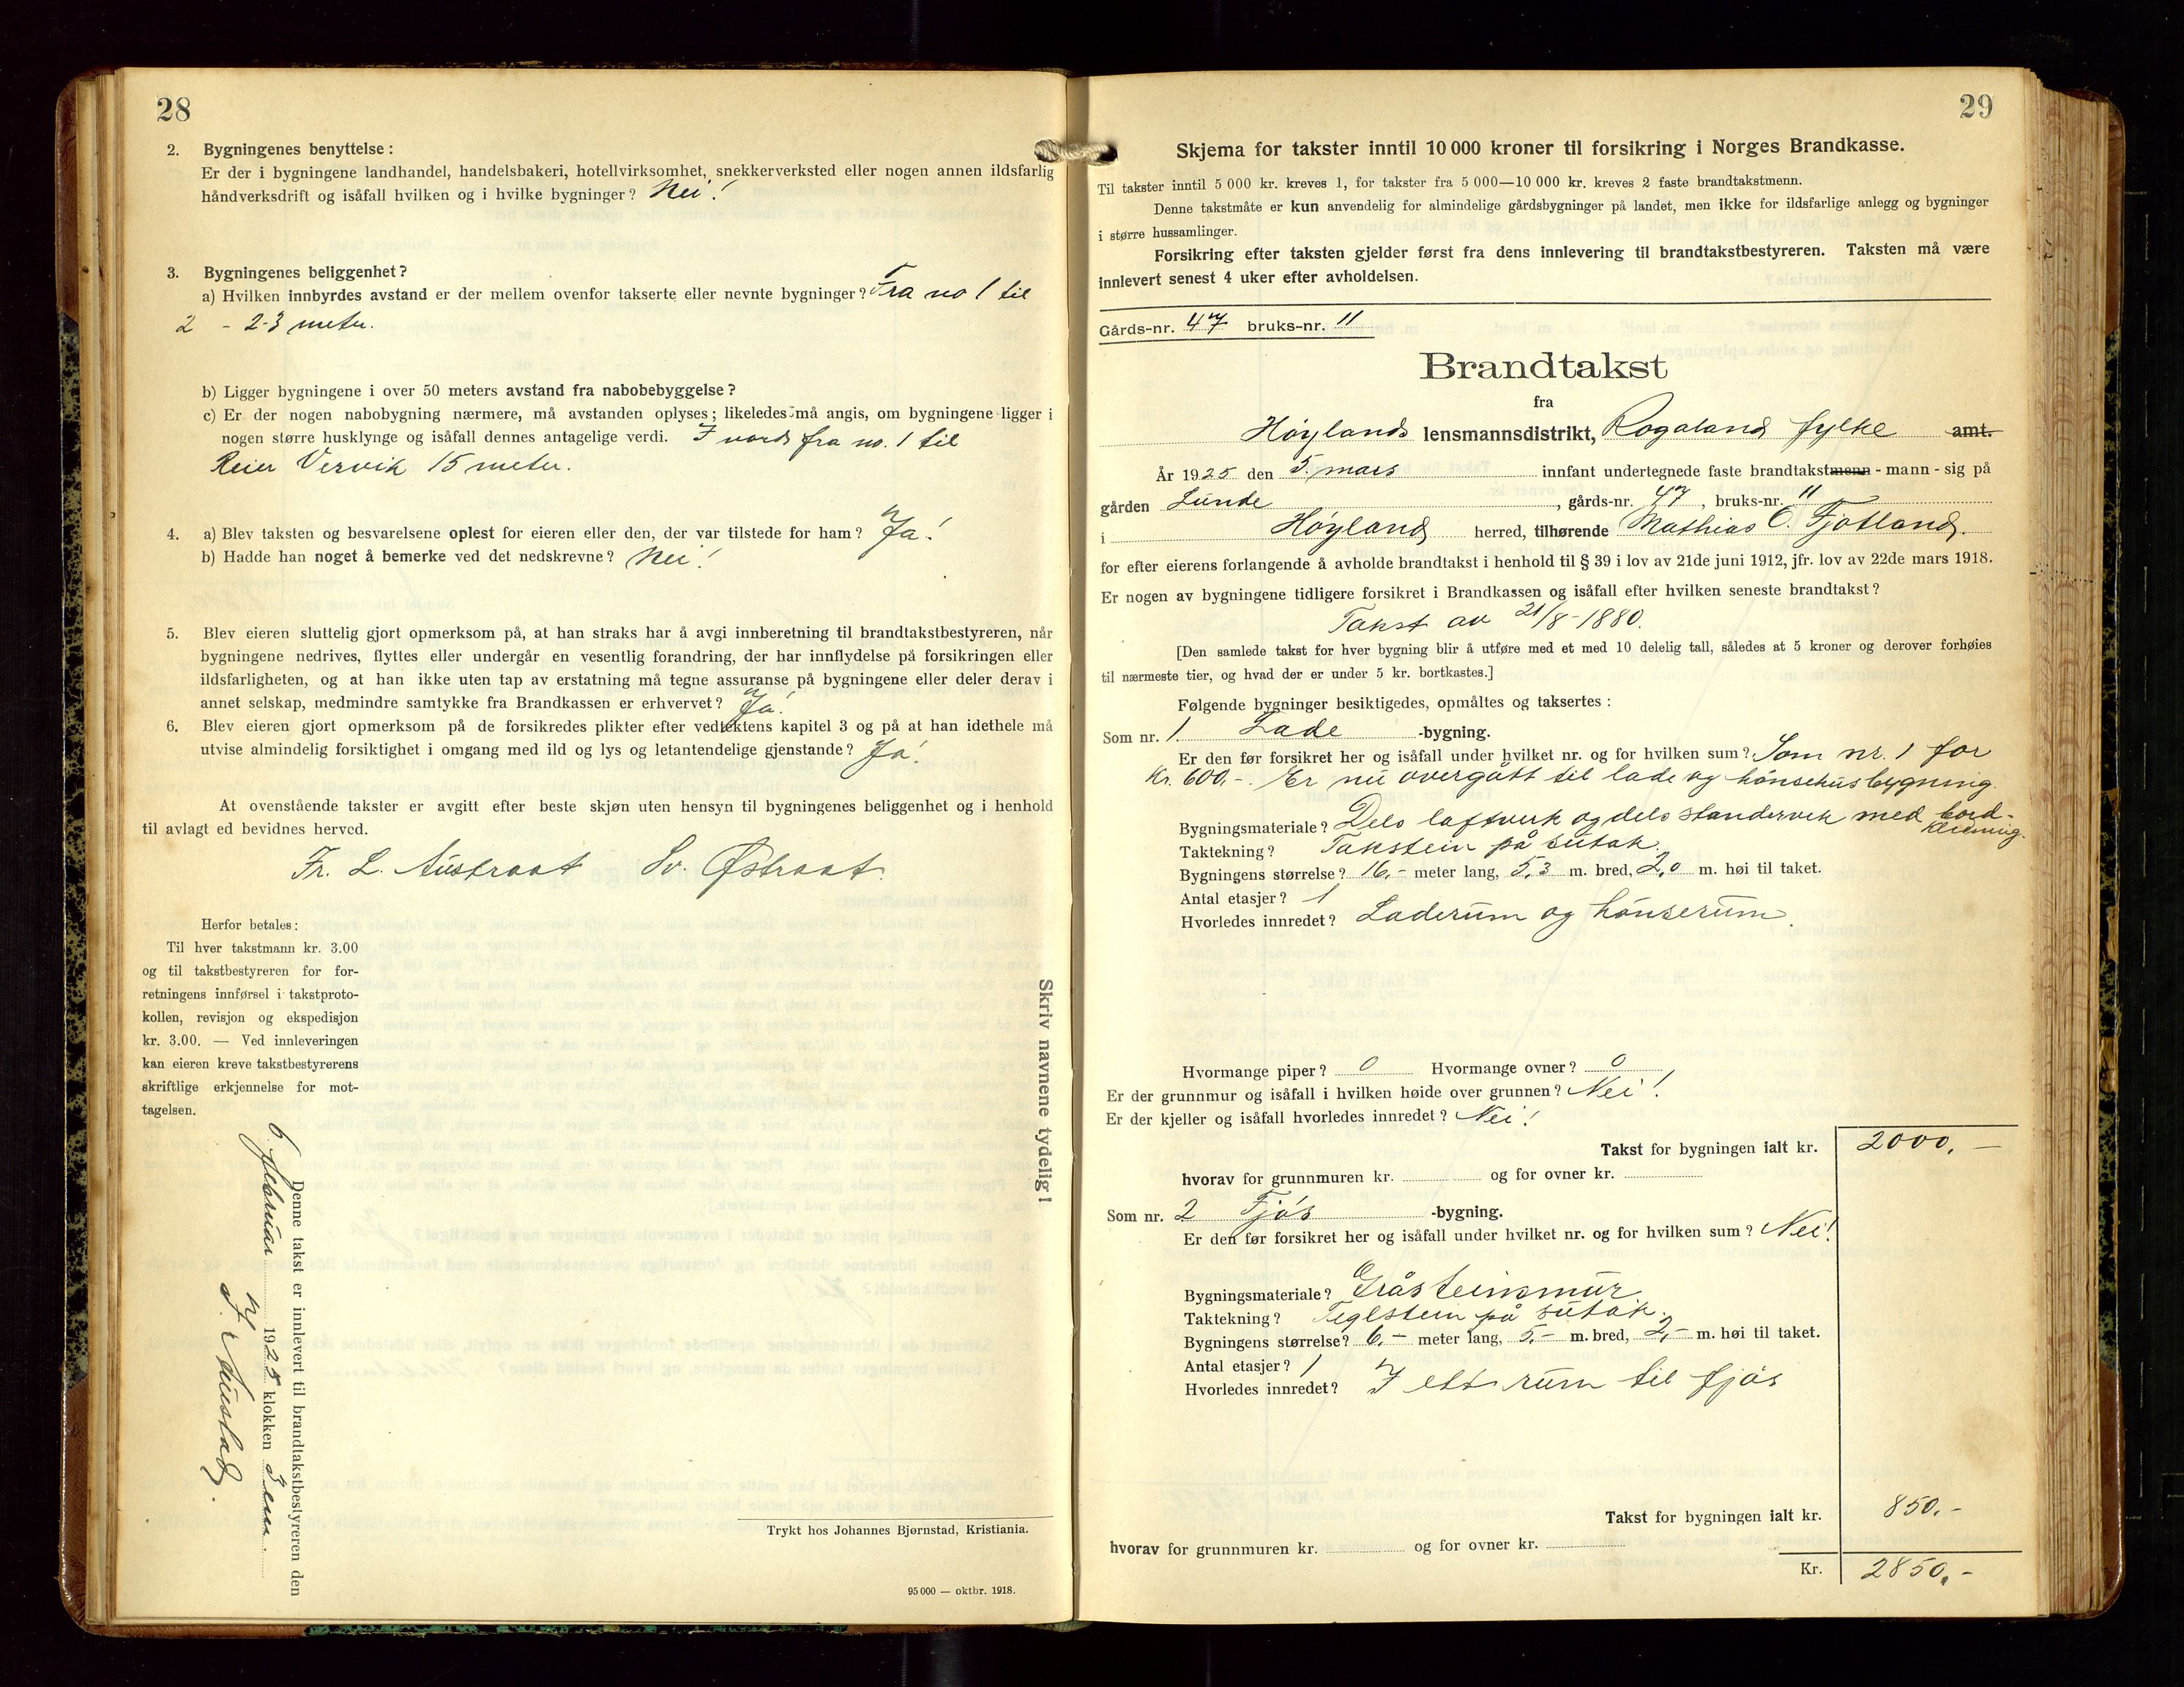 28
2. Bygningenes benyttelse:
Er der i bygningene landhandel, handelsbakeri, hotellvirksomhet, snekkerverksted eller nogen annen ildsfarlig
håndverksdrift og isåfall hvilken og i hvilke bygninger? Nei!
3. Bygningenes beliggenhet?
a) Hvilken innbyrdes avstand er der mellem ovenfor takserte eller nevnte bygninger? Fra no 1 til
2 - 2-3 meter.
b) Ligger bygningene i over 50 meters avstand fra nabobebyggelse?
c) Er der nogen nabobygning nærmere, må avstanden oplyses; likeledes må angis, om bygningene ligger i
nogen større husklynge og isåfall dennes antagelige verdi. I nord fra no. 1 til
Reier Vervik 15 meter.
4. a) Blev taksten og besvarelsene oplest for eieren eller den, der var tilstede for ham? Ja!
b) Hadde han noget å bemerke ved det nedskrevne? Nei!
5. Blev eieren sluttelig gjort opmerksom på, at han straks har å avgi innberetning til brandtakstbestyreren, når
bygningene nedrives, flyttes eller undergår en vesentlig forandring, der har innflydelse på forsikringen eller
ildsfarligheten, og at han ikke uten tap av erstatning må tegne assuranse på bygningene eller deler derav i
annet selskap, medmindre samtykke fra Brandkassen er erhvervet? Ja!
6. Blev eieren gjort opmerksom på de forsikredes plikter efter vedtektens kapitel 3 og på at han idethele må
utvise almindelig forsiktighet i omgang med ild og lys og letantendelige gjenstande? Ja!
At ovenstående takster er avgitt efter beste skjøn uten hensyn til bygningenes beliggenhet og i henhold
til avlagt ed bevidnes herved.
Fr. L. Austraat Sv. Østraat.
Herfor betales:
Til hver takstmann kr. 3.00
og til takstbestyreren for for-
retningens innførsel i takstproto-
kollen, revisjon og ekspedisjon
kr. 3.00. — Ved innleveringen
kan eieren kreve takstbestyrerens
skriftlige erkjennelse for mot-
tagelsen.
Skriv navnene tydelig!
Denne takst er innlevert til brandtakstbestyreren den
6 februar 1925 klokken 3 em.
Trykt hos Johannes Bjørnstad, Kristiania.
95 000 — oktbr. 1918.
29
Skjema for takster inntil 10 000 kroner til forsikring i Norges Brandkasse.
Til takster inntil 5 000 kr. kreves 1, for takster fra 5 000—10 000 kr. kreves 2 faste brandtakstmenn.
Denne takstmåte er kun anvendelig for almindelige gårdsbygninger på landet, men ikke for ildsfarlige anlegg og bygninger
i større hussamlinger.
Forsikring efter taksten gjelder først fra dens innlevering til brandtakstbestyreren. Taksten må være
innlevert senest 4 uker efter avholdelsen.
Gårds-nr. 47 bruks-nr. 11
Brandtakst
fra
Høylands lensmannsdistrikt, Rogaland fylke amt.
År 1925 den 5. mars innfant undertegnede faste brandtakstmenn - mann - sig på
gården Lunde, gårds-nr. 47, bruks-nr. 11
i Høyland herred, tilhørende Mathias O. Fjotland.
for efter eierens forlangende å avholde brandtakst i henhold til § 39 i lov av 21de juni 1912, jfr. lov av 22de mars 1918.
Er nogen av bygningene tidligere forsikret i Brandkassen og isåfall efter hvilken seneste brandtakst?
Takst av 21/8-1880.
[Den samlede takst for hver bygning blir å utføre med et med 10 delelig tall, således at 5 kroner og derover forhøies
til nærmeste tier, og hvad der er under 5 kr. bortkastes.]
Følgende bygninger besiktigedes, opmåltes og taksertes:
Som nr. 1. Lade -bygning.
Er den før forsikret her og isåfall under hvilket nr. og for hvilken sum? Som nr. 1 for
Kr. 600,-. Er nu overgått til lade og hønsehusbygning.
Bygningsmateriale? Dels laftverk og dels standerverk med bord-
kledning.
Taktekning? Takstein på sutak.
Bygningens størrelse? 16,- meter lang, 5,3 m. bred, 2,0 m. høi til taket.
Antal etasjer? 1
Hvorledes innredet? Laderum og hønserum.
Hvormange piper? 0 Hvormange ovner? 0
Er der grunnmur og isåfall i hvilken høide over grunnen? Nei!
Er der kjeller og isåfall hvorledes innredet? Nei!
Takst for bygningen ialt kr. 2000,-
hvorav for grunnmuren kr. og for ovner kr.
Som nr. 2 Fjøs -bygning.
Er den før forsikret her og isåfall under hvilket nr. og for hvilken sum? Nei!
Bygningsmateriale? Gråsteinsmur
Taktekning? Teglstein på sutak.
Bygningens størrelse? 6,- meter lang, 5,- m. bred, 2,- m. høi til taket.
Antal etasjer? 1
Hvorledes innredet? I ett rum til fjøs
Takst for bygningen ialt kr. 850,-
hvorav for grunnmuren kr. og for ovner kr.
Kr. 2850,-